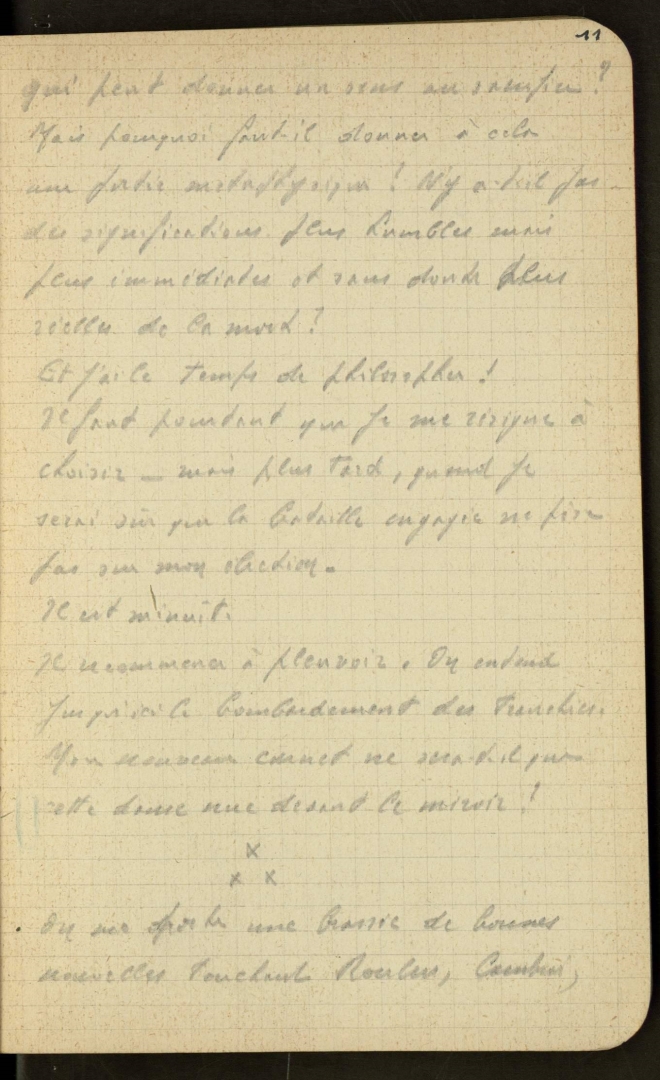 11
qui peut donner un sens au sacrifice ?
Mais pourquoi faut-il donner à cela
une portée métaphysique ! N'y a-t-il pas
des significations plus humbles mais
plus immédiates et sans doute plus
réelles de la mort ?
Et j'ai le temps de philosopher !
Il faut pourtant que je me risque à
choisir — mais plus tard, quand je
serai sûr que la bataille engagée ne pèse
pas sur mon élection.
Il est minuit.
Il recommence à pleuvoir. On entend
jusqu'ici le bombardement des tranchées.
Mon nouveau carnet ne sera-t-il que
cette danse nue devant le miroir !
x
x x
On me apporte une brassée de bonnes
nouvelles touchant Roulers,